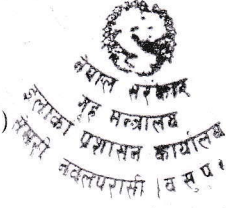 नेपाल सरकार
गृह मन्त्रालय
इलाका प्रशासन कार्यालय
नवलपरासी (ब सु प
)